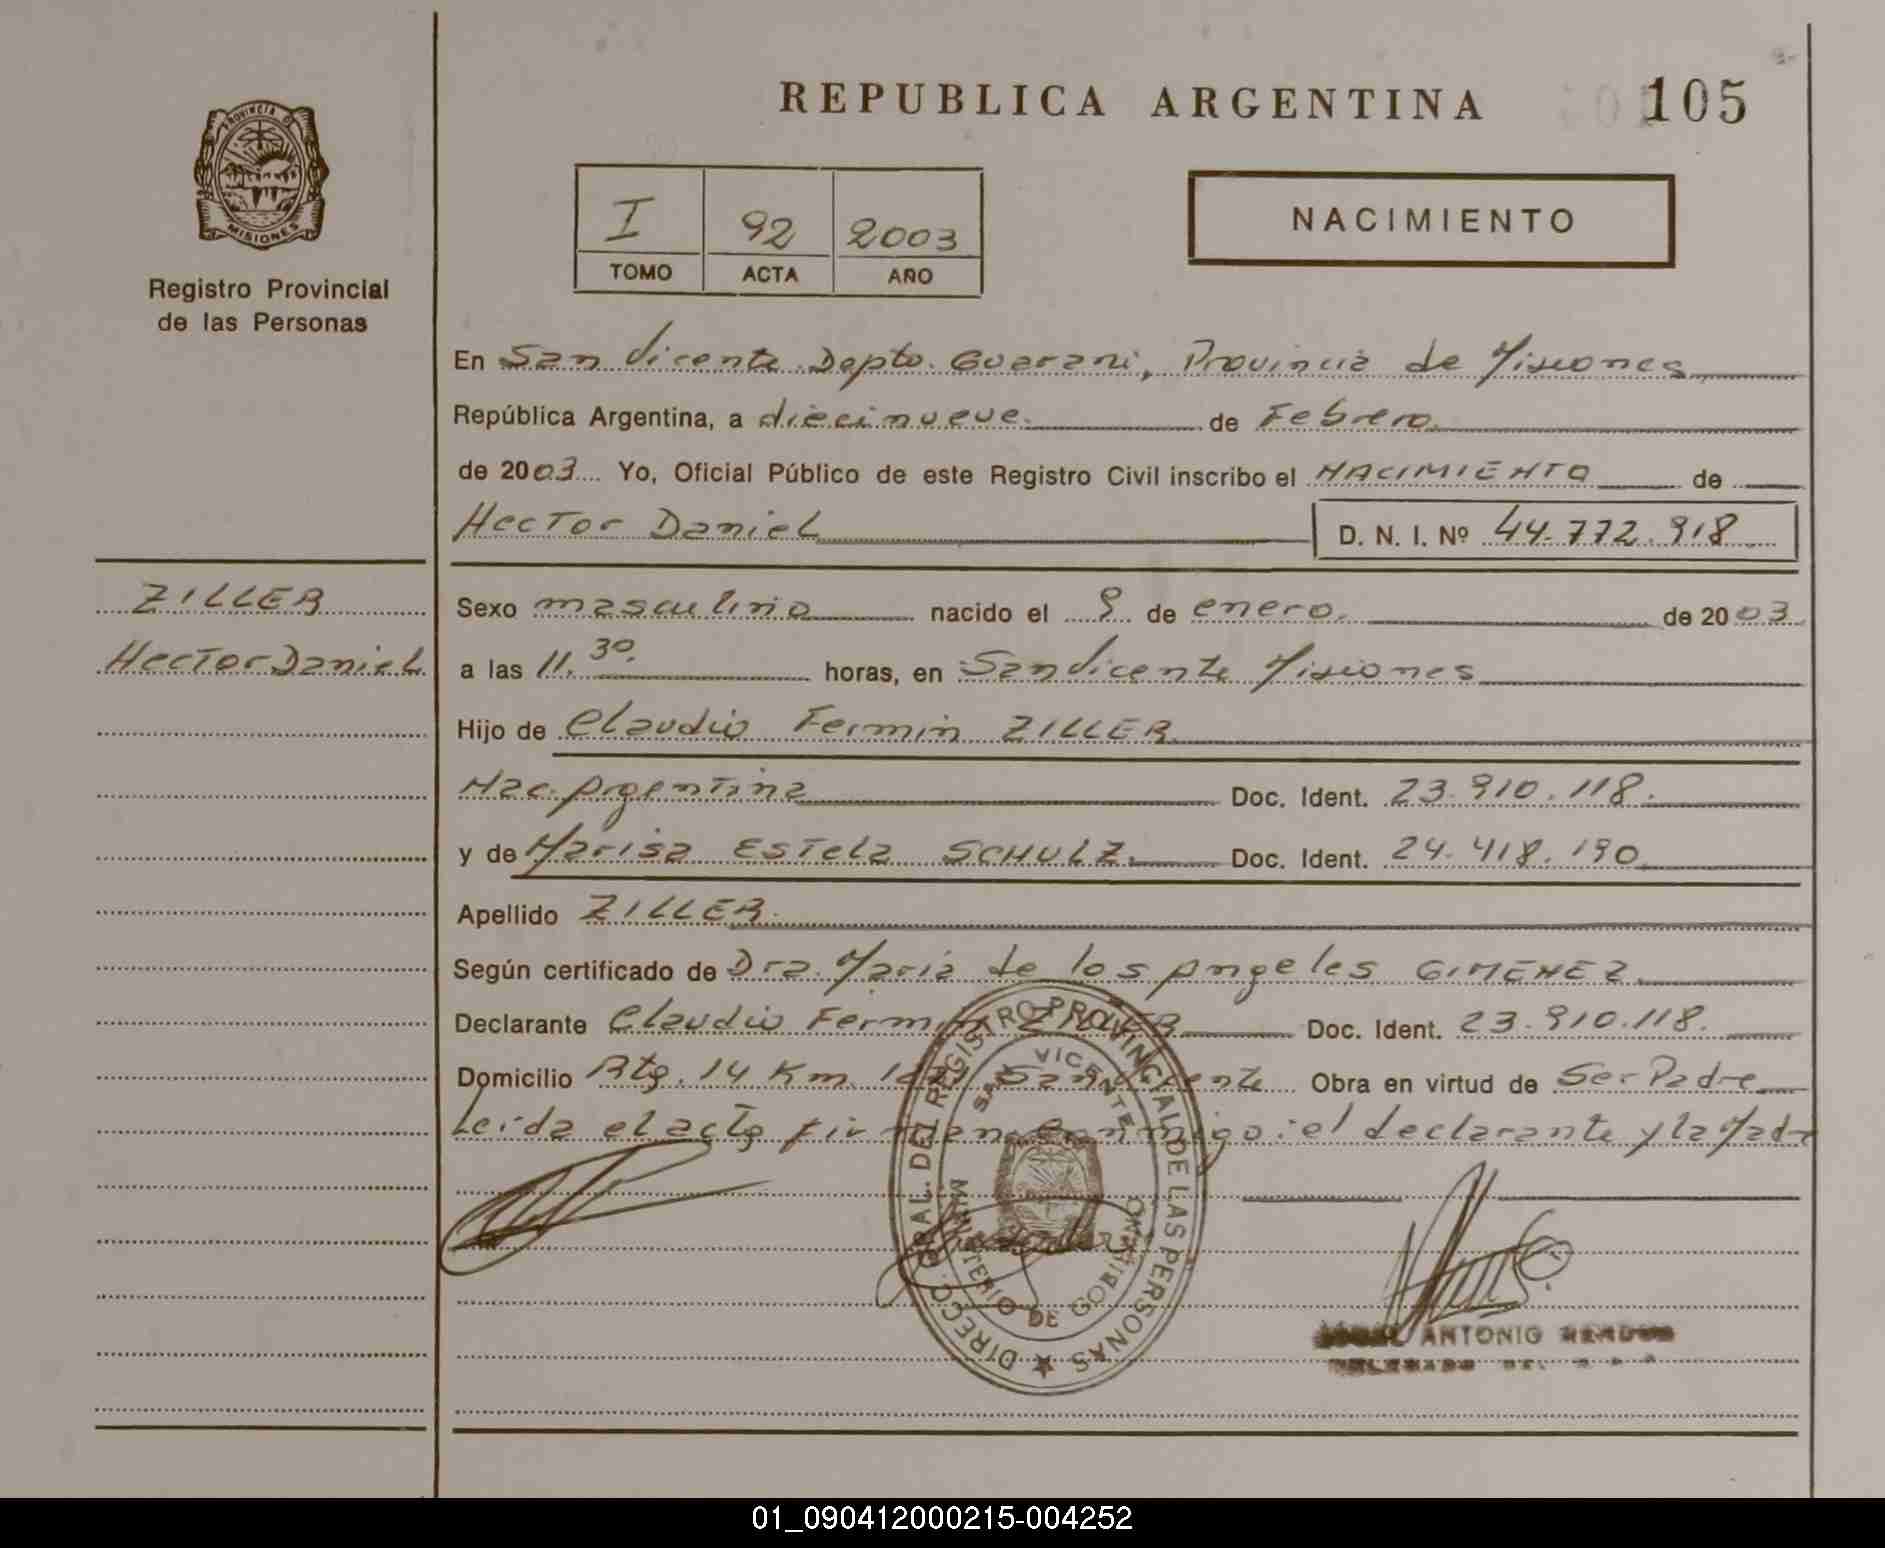 REPUBLICA ARGENTINA
105
PROVINCIA DE
MISIONES
Registro Provincial
de las Personas
I 92 2003
TOMO ACTA AÑO
NACIMIENTO
En San Vicente Depto. Guarani, Provincia de Misiones
República Argentina, a diecinueve. de Febrero
de 2003 Yo, Oficial Público de este Registro Civil inscribo el NACIMIENTO de
Hector Daniel
D. N. I. Nº 44.772.918
ZILLER
Hector Daniel
Sexo masculino nacido el 9 de enero. de 2003
a las 11.30. horas, en San Vicente Misiones
Hijo de Claudio Fermin ZILLER
Nac. Argentina Doc. Ident. 23.910.118.
y de Marisa Estela SCHULZ. Doc. Ident. 24.418.190
Apellido ZILLER.
Según certificado de Dra. Maria de los Angeles GIMENEZ.
Declarante Claudio Fermin ZILLER Doc. Ident. 23.910.118.
Domicilio Rta. 14 Km. San Vicente Obra en virtud de Ser Padre
Leida el acta firman conmigo: el declarante y la Madre
DIRECC. GRAL. DEL REGISTRO PROVINCIAL DE LAS PERSONAS
SAN VICENTE
MINISTERIO DE GOBIERNO
ANTONIO
DELEGADO DEL
01_090412000215-004252